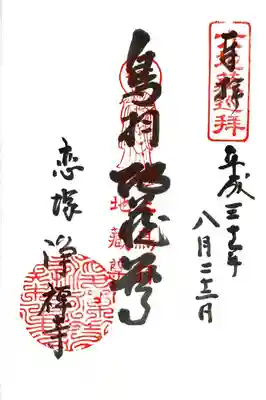 奉拝
平成三十年
八月二十二日
鳥羽地蔵尊
恋塚 浄禅寺